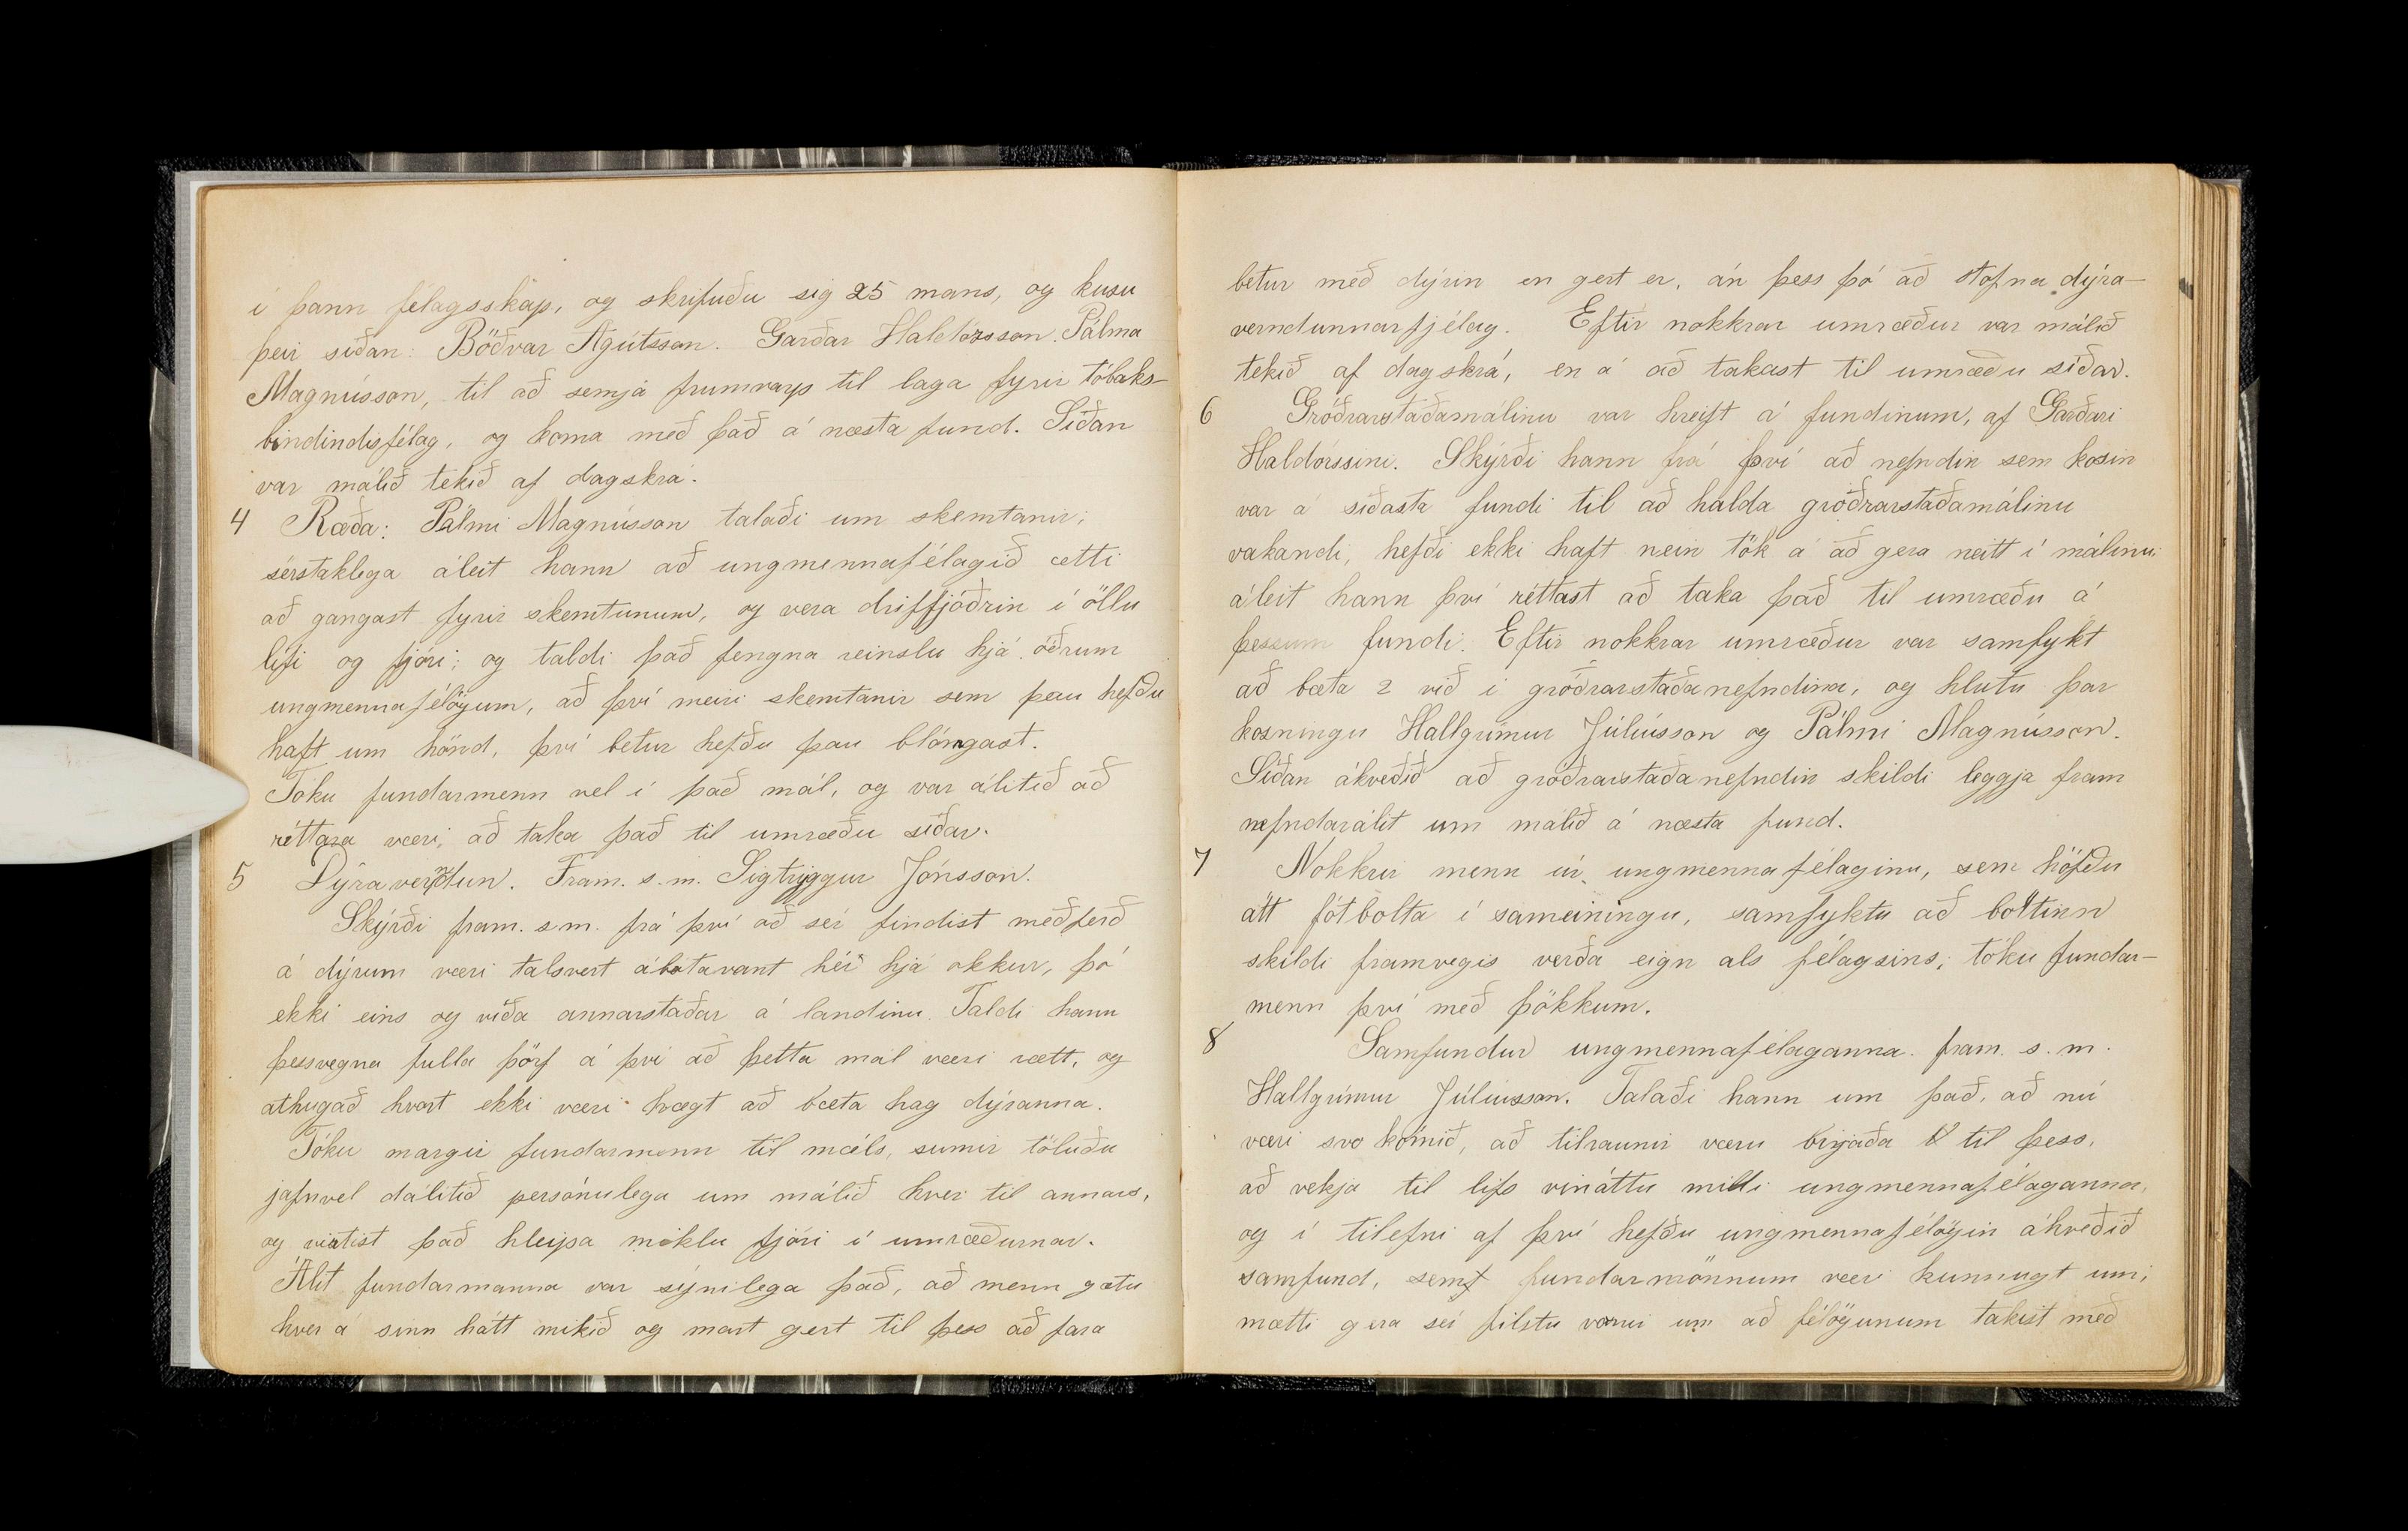 í þann félagsskap, og skrifuðu sig 25 mans, og kusu
þeir síðan: Böðvar Ágútsson. Garðar Haldórsson. Pálma
Magnússon, til að semja frumvarp til laga fyrir tóbaks-
bindindisfélag, og koma með það á næsta fund. Síðan
var málið tekið af dagskrá.
4 Ræða: Pálmi Magnússon talaði um skemtanir;
sérstaklega áleit hann að ungmennafélagið ætti
að gangast fyrir skemtunum, og vera driffjöðrin í öllu
lífi og fjöri; og taldi það fengna reinslu hjá öðrum
ungmennafélögum, að því meiri skemtanir sem þau hefðu
haft um hönd, því betur hefðu þau blómgast.
Tóku fundarmenn vel í það mál, og var álitið að
réttara væri, að taka það til umræðu síðar.
5 Dýraverndun. Fram. s.m. Sigtryggur Jónsson.
Skýrði fram. s.m. frá því að sér findist meðferð
á dýrum væri talsvert ábótavant hér hjá okkur, þó
ekki eins og víða annarstaðar á landinu. Taldi hann
þessvegna fulla þörf á því að þetta mál væri rætt, og
athugað hvort ekki væri hægt að bæta hag dýranna.
Tóku margir fundarmenn til máls, sumir töluðu
jafnvel dálítið persónulega um málið hver til annars,
og virtist það hleypa miklu fjöri í umræðurnar.
Álit fundarmanna var sýnilega það, að menn gætu
hver á sinn hátt mikið og mart gert til þess að fara
betur með dýrin en gert er, án þess þó að stofna dýra-
verndunnarfjélag. Eftir nokkrar umræður var málið
tekið af dagskrá, en á að takast til umræðu síðar.
6 Gróðrarstaðamálinu var hreift á fundinum, af Garðari
Haldórssini. Skýrði hann frá því að nefndin sem kosin
var á síðasta fundi til að halda gróðrarstaðamálinu
vakandi, hefði ekki haft nein tök á að gera neitt í málinu
áleit hann því réttast að taka það til umræðu á
þessum fundi. Eftir nokkrar umræður var samþykt
að bæta 2 við í gróðrarstaðanefndina, og hlutu þar
kosningu Hallgrímur Júlíusson og Pálmi Magnússon.
Síðan ákveðið að gróðrarstaðanefndin skildi leggja fram
nefndarálit um málið á næsta fund.
7 Nokkrir menn úr ungmennafélaginu, sem höfðu
átt fótbolta í sameiningu, samþyktu að boltinn
skildi framvegis verða eign als félagsins; tóku fundar-
menn því með þökkum.
8 Samfundur ungmennafélaganna. fram. s.m.
Hallgrímur Júlíusson. Talaði hann um það, að nú
væri svo komið, að tilraunir væru birjaða til þess,
að vekja til lífs vináttu milli ungmennafélaganna,
og í tilefni af því hefðu ungmennafélögin ákveðið
samfund, sem fundarmönnum væri kunnugt um;
mætti gera sér filstu vonir um að félögunum takist með